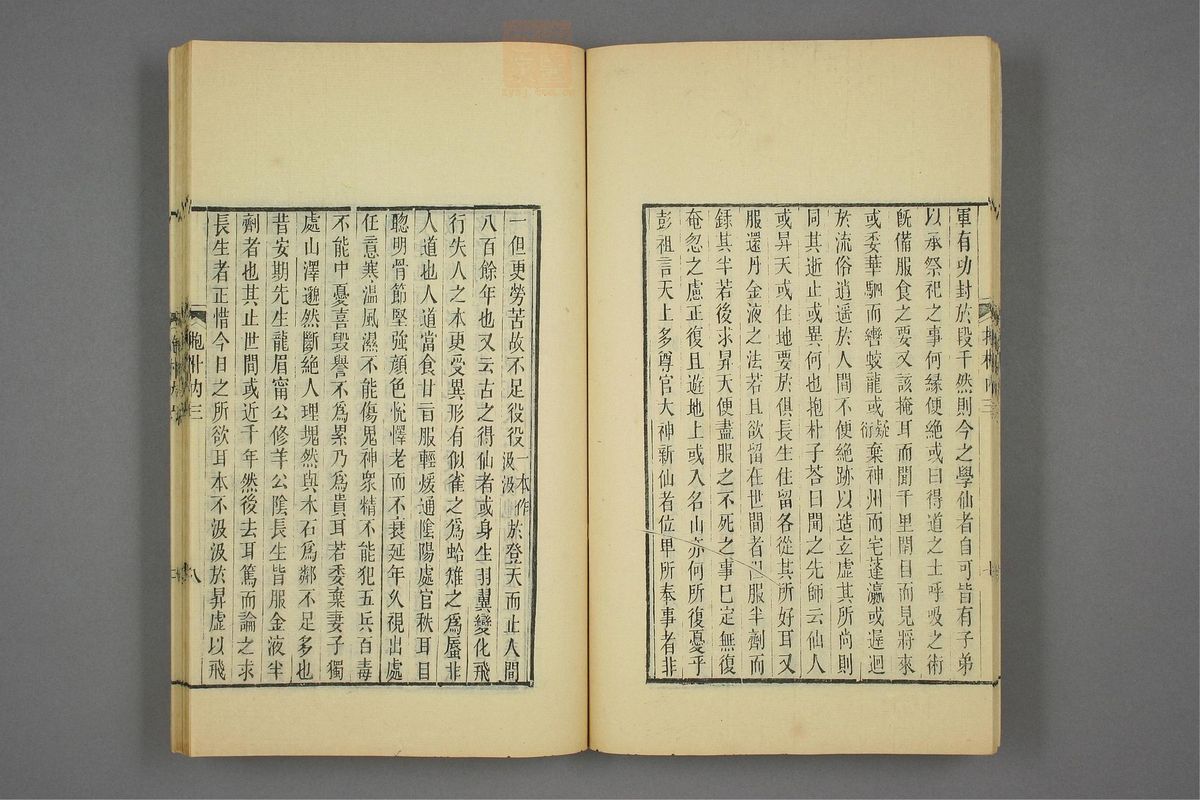 軍有功封於段干然則今之學仙者自可皆有子弟
以承祭祀之事何緣便絶或曰得道之士呼吸之術
既備服食之要又該掩耳而聞千里閉目而見將來
或委華駟而轡蛟龍或疑衍棄神州而宅蓬瀛或遲迴
於流俗逍遥於人間不便絶跡以造玄虛其所尚則
同其逝止或異何也抱朴子荅曰聞之先師云仙人
或昇天或住地要於俱長生住留各從其所好耳又
服還丹金液之法若且欲留在世間者但服半劑而
錄其半若後求昇天便盡服之不死之事已定無復
奄忽之慮正復且遊地上或入名山亦何所復憂乎
彭祖言天上多尊官大神新仙者位卑所奉事者非
抱朴内三
七
一但更勞苦故不足役役一本作汲汲於登天而止人間
八百餘年也又云古之得仙者或身生羽翼變化飛
行失人之本更受異形有似雀之爲蛤雉之爲蜃非
人道也人道當食甘旨服輕煖通陰陽處官秩耳目
聰明骨節堅強顔色悅懌老而不衰延年久視出處
任意寒温風濕不能傷鬼神衆精不能犯五兵百毒
不能中憂喜毀譽不爲累乃爲貴耳若委棄妻子獨
處山澤邈然斷絶人理塊然與木石爲鄰不足多也
昔安期先生龍眉甯公修羊公陰長生皆服金液半
劑者也其止世間或近千年然後去耳篤而論之求
長生者正惜今日之所欲耳本不汲汲於昇虛以飛
抱朴内三
八